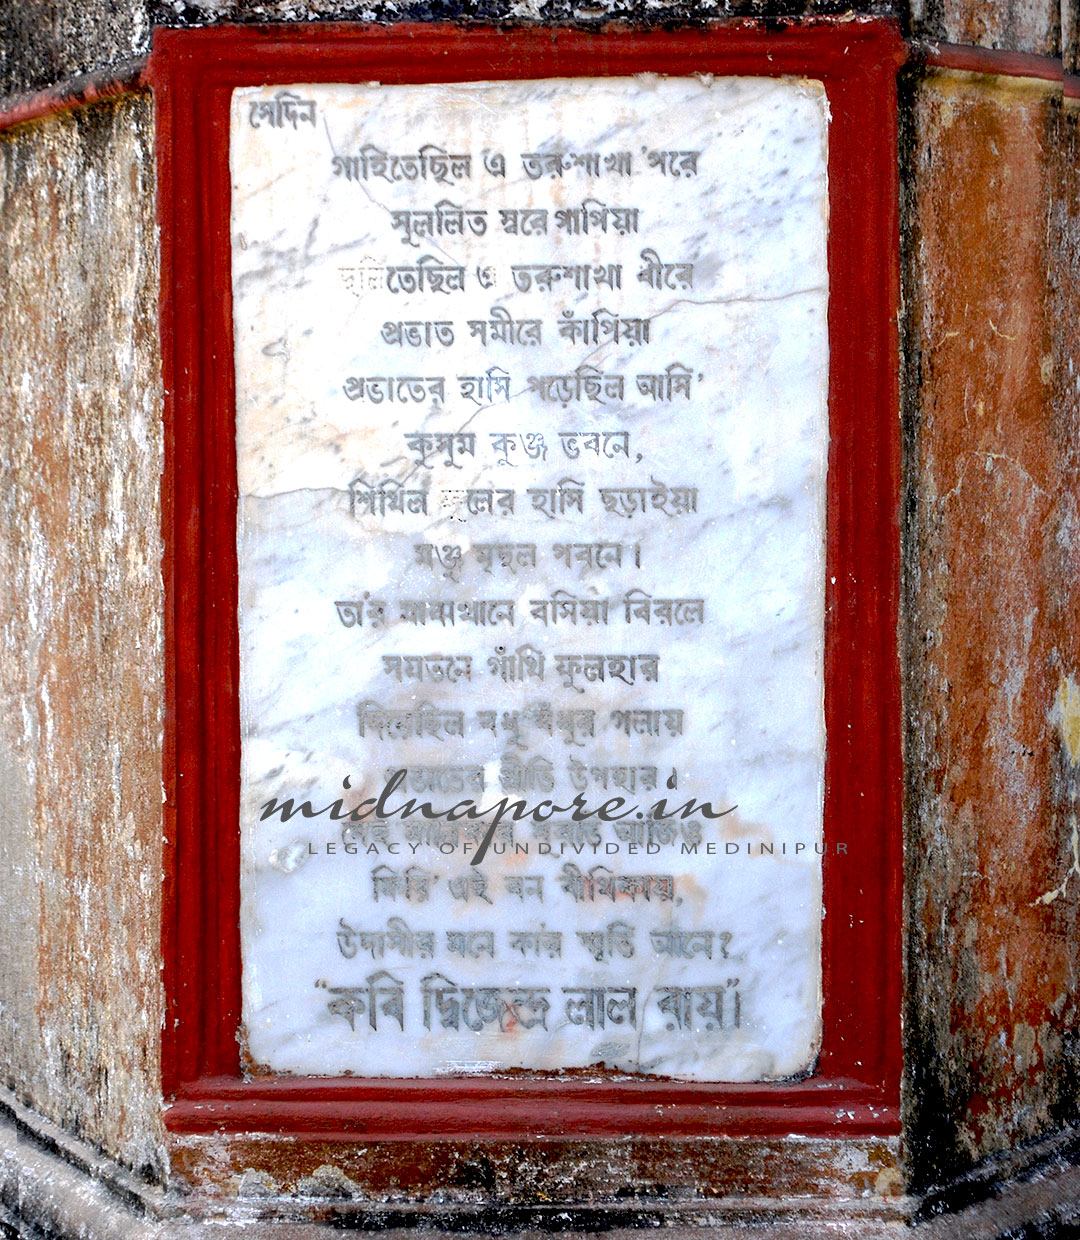 সেদিন
গাহিতেছিল এ তরুশাখা 'পরে
সুললিত স্বরে পাপিয়া
দুলিতেছিল এ তরুশাখা ধীরে
প্রভাত সমীরে কাঁপিয়া
প্রভাতের হাসি পড়েছিল আসি'
কুসুম কুঞ্জ ভবনে,
শিথিল ফুলের হাসি ছড়াইয়া
মঞ্জু মৃদুল পবনে।
তা'র মাঝখানে বসিয়া বিরলে
সযতনে গাঁথি ফুলহার
দিয়েছিল বধু বঁধুর গলায়
প্রভাতের প্রীতি উপহার।
midnapore.in
আজিও
LEGACY OF UNDIVIDED MEDINIPUR
ফিরি' এই বন বীথিকায়,
উদাসীর মনে কা'র স্মৃতি আনে?
"কবি দ্বিজেন্দ্র লাল রায়"।